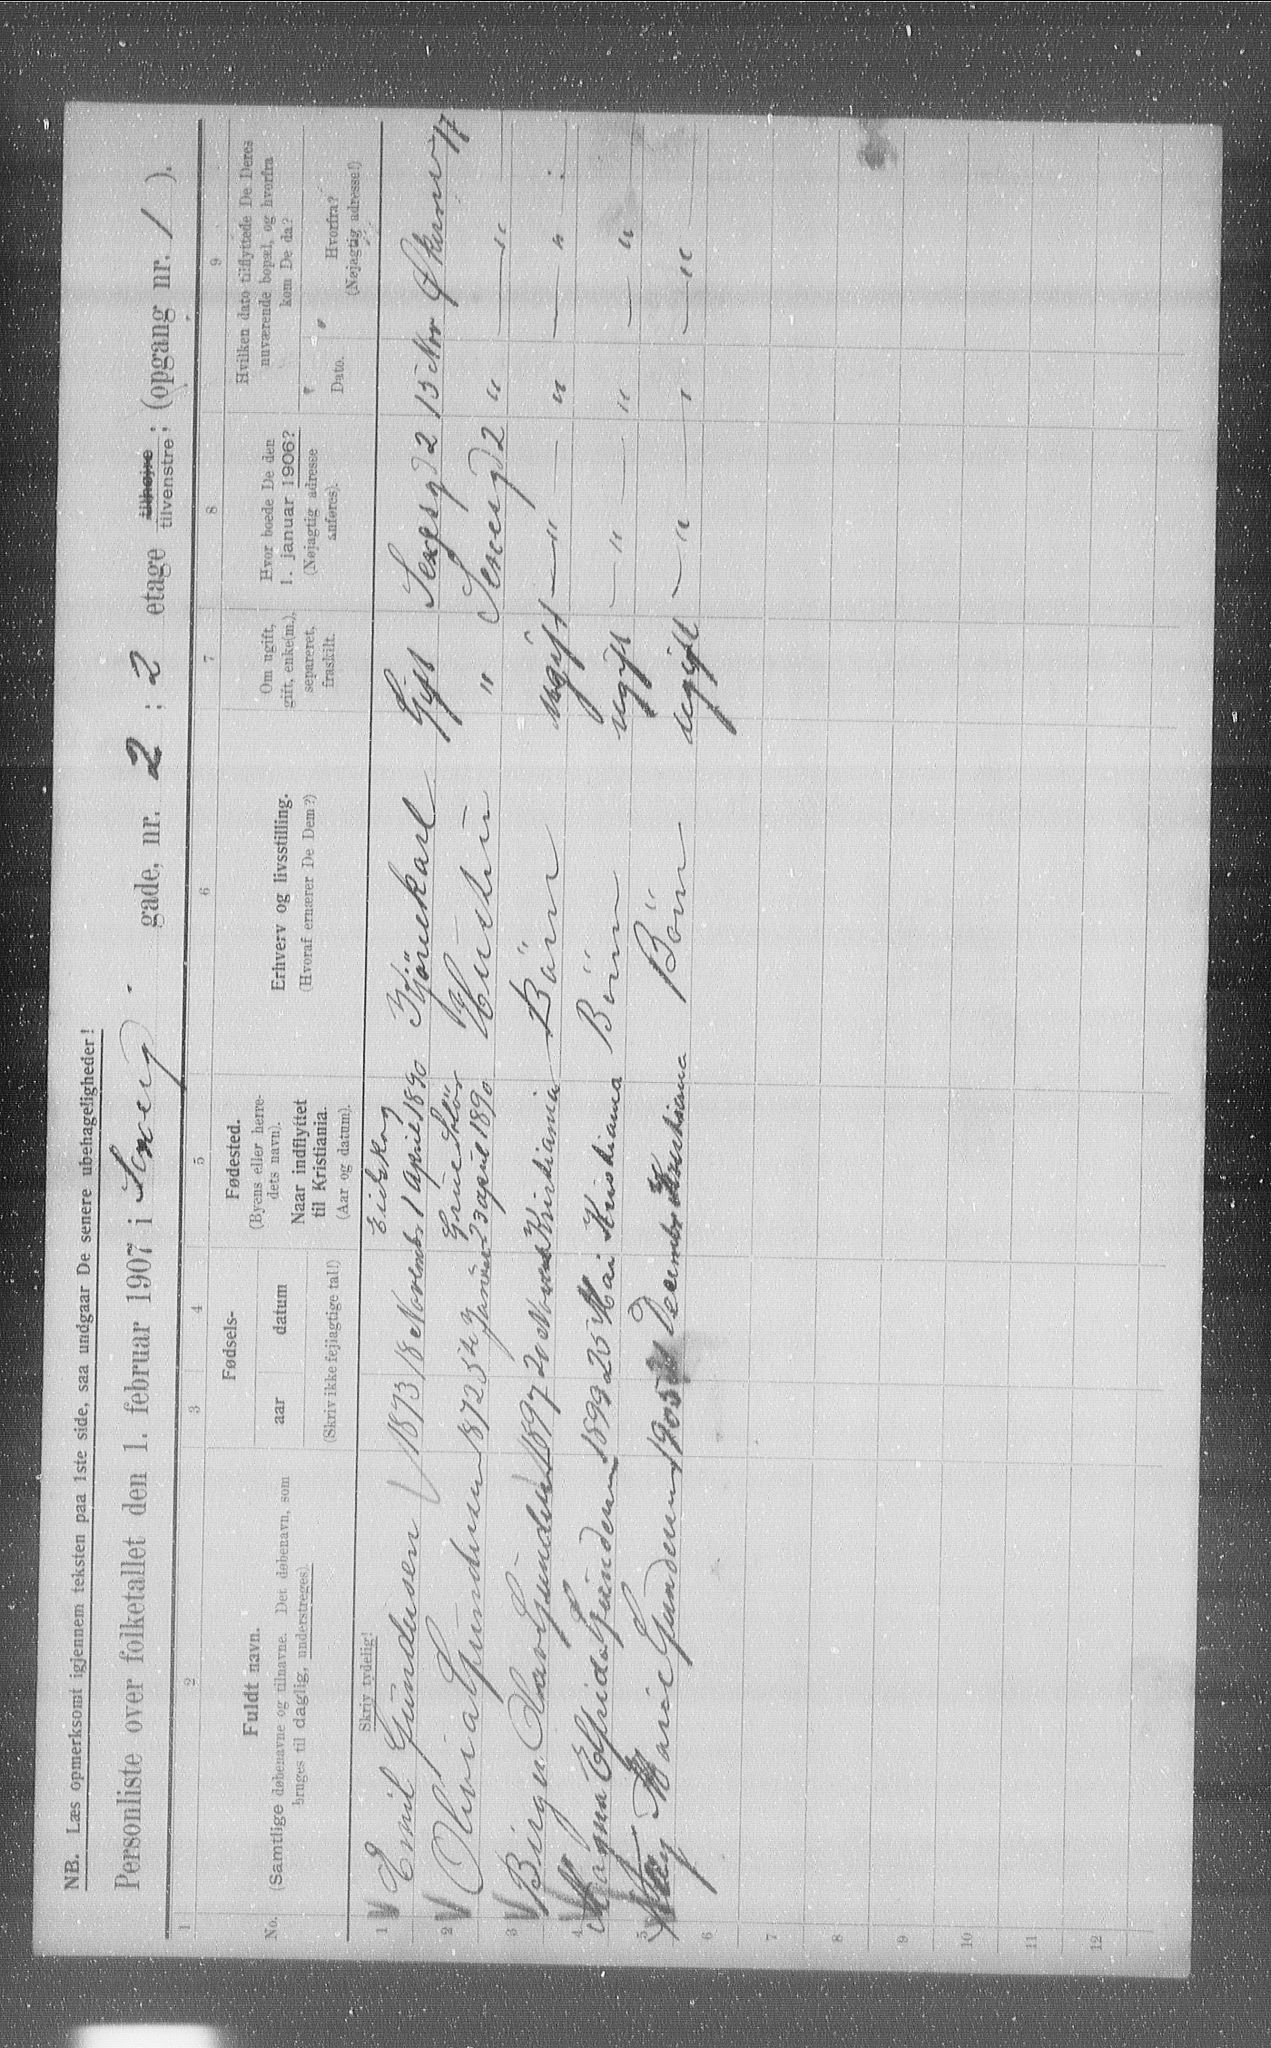 NB. Læs opmerksomt igjennem teksten paa 1ste side, saa undgaar De senere ubehageligheder!
Personliste over folketallet den 1. februar 1907 i gade, nr. 2 ; 2 etage tilhøjre tilvenstre; (opgang nr. 1 ).
1 2 3 4 5 6 7 8 9
No. Fuldt navn. (Samtlige døbenavne og tilnavne. Det døbenavn, som bruges til daglig, understreges).
Fødsels-
aar datum
(Skriv ikke fejlagtige tal!)
Fødested. (Byens eller herredets navn). Naar indflyttet til Kristiania. (Aar og datum).
Erhverv og livsstilling. (Hvoraf ernærer De Dem?)
Om ugift, gift, enke(m.), separeret, fraskilt.
Hvor boede De den 1. januar 1906? (Nøjagtig adresse anføres).
Hvilken dato tilflyttede De Deres nuværende bopæl, og hvorfra kom De da?
Dato. Hvorfra? (Nøjagtig adresse!)
Skriv tydelig!
1 Emil Gundersen 1873 18 November Eidskog 1 april 1890 Kjörekarl Gift 2 15 Nov 17
2 Olivia Gundersen 1872 Grue Solör 23 april 1890 Hustru " 2 " — " —
3 Birger Gundersen 1897 Kristiania Börn ugift — " — " — " —
4 Magna Elfrida Gundersen 1899 25 Mai Kristiania Börn ugift — " — " — " —
5 Marie Gundersen 1905 December Kristiania Börn ugift — " — " — " —
6
7
8
9
10
11
12